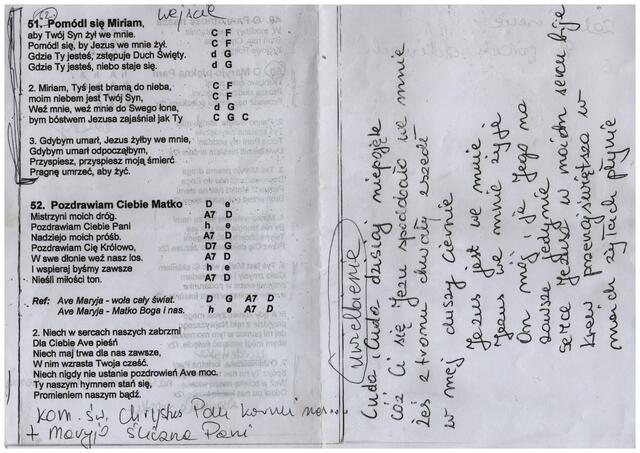 52 wejście
51. Pomódl się Miriam,
aby Twój Syn żył we mnie. C F
Pomódl się, by Jezus we mnie żył. C F
Gdzie Ty jesteś, zstępuje Duch Święty. d G
Gdzie Ty jesteś, niebo staje się. d G
2. Miriam, Tyś jest bramą do nieba, C F
moim niebem jest Twój Syn, C F
Weź mnie, weź mnie do Swego łona, d G
bym bóstwem Jezusa zajaśniał jak Ty C G C
3. Gdybym umarł, Jezus żyłby we mnie,
Gdybym umarł odpocząłbym,
Przyspiesz, przyspiesz moją śmierć
Pragnę umrzeć, aby żyć.
52. Pozdrawiam Ciebie Matko D e
Mistrzyni moich dróg. A7 D
Pozdrawiam Ciebie Pani h e
Nadziejo moich próśb. A7 D
Pozdrawiam Cię Królowo, D7 G
W swe dłonie weź nasz los. A7 D
I wspieraj byśmy zawsze h e
Nieśli miłości ton. A7 D
Ref: Ave Maryja - woła cały świat. D G A7 D
Ave Maryja - Matko Boga i nas. h e A7 D
2. Niech w sercach naszych zabrzmi
Dla Ciebie Ave pieśń
Niech maj trwa dla nas zawsze,
W nim wzrasta Twoja cześć.
Niech nigdy nie ustanie pozdrowień Ave moc.
Ty naszym hymnem stań się,
Promieniem naszym bądź.
kom. św. Chrystus Pan karmi nas...
+ Maryjo śliczna Pani
uwielbienie
Cuda cuda dzisiaj niepojęte
cóż Ci się Jezu spodobało we mnie
Żeś z tronu chwały zszedł
w mej duszy ciernie
Jezus jest we mnie
Jezus we mnie żyje
On mój i ja Jego na
zawsze jedynie
Serce Jezusa w moim sercu bije
Krew przenajświętsza w
moich żyłach płynie